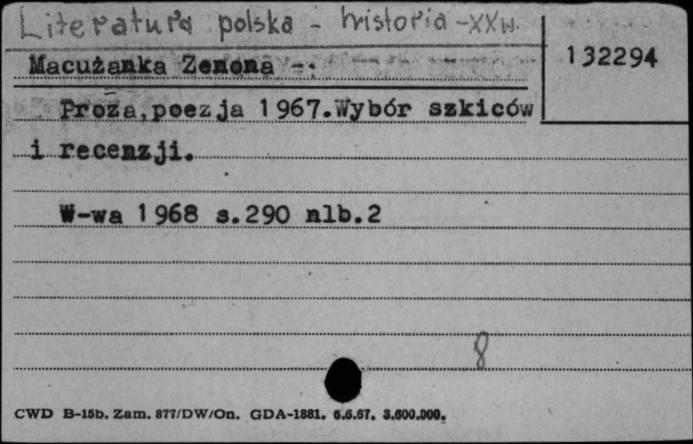 Literatura polska - historia - XX w.
132294
Macużanka Zenona -:
Proza,poezja 1967.Wybór szkiców
i recenzji.
W-wa 1968 s.290 nlb.2
8
CWD B-15b. Zam. 877/DW/On. GDA-1881. 6.6.67. 3.600.000.